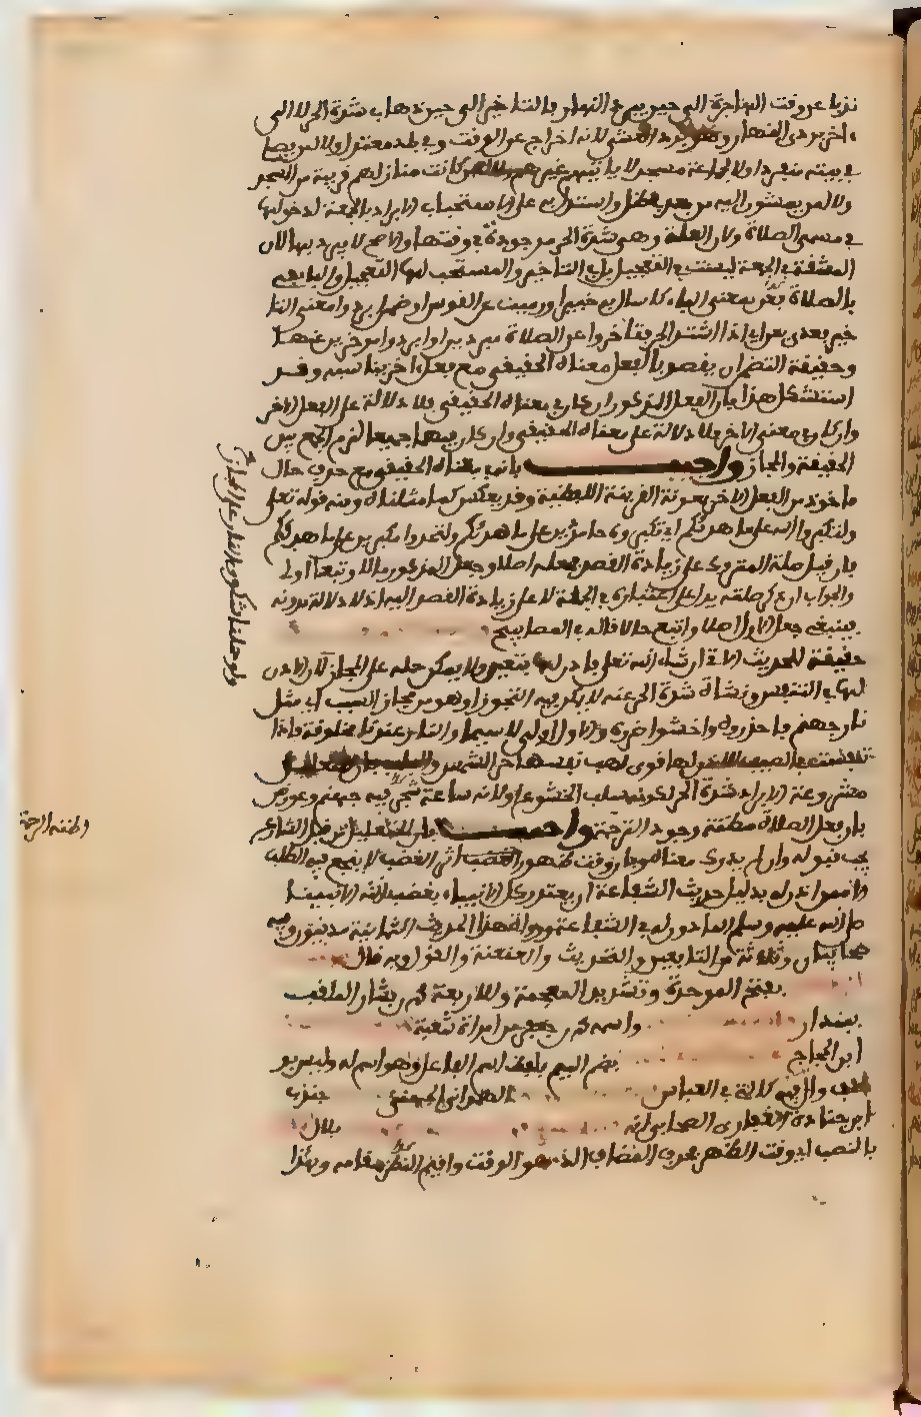 ندبا عن وقت الهاجرة الى حين يبرد النهار بالتاخير الى حين ذهاب شدة الحر لا الى
اخر بردى النهار وهو برد العشى لانه اخراج عن الوقت وفي بلد معتدل ولا لمن يصلى
في بيته منفردا ولا لجماعة مسجد لا ياتيهم غيرهم ولا لمن كانت منازلهم قريبة من المسجد
ولا لمن يمشون اليه من بعد في ظل واستدل به على استحباب الابراد بالجمعة لدخولها
في مسمى الصلاة ولان العلة وهى شدة الحر موجودة في وقتها والاصح لا يبرد بها لان
المشقة في الجمعة ليست في التعجيل بل في التاخير والمستحب لها التعجيل والباء في
بالصلاة بمعنى الباء كاسال به خبيرا ورميت عن القوس او ضمن ابرد وا معنى التا
خير بعدى بعن اى اذا اشتد الحر فتاخروا عن الصلاة مبردين او ابردوا موخرين عنها
وحقيقة التضمين ان يقصد بالفعل معناه الحقيقي مع فعل اخر يناسبه وقد
استشكل هذا بان الفعل المذكور ان كان في معناه الحقيقي فلا دلالة على الفعل الاخر
وان كان في معنى الاخر فلا دلالة على معناه الحقيقي وان كان فيهما جميعا لزم الجمع بين
الحقيقة والمجاز واجيب بانه في معناه الحقيقي مع حذف حال
ماخوذ من الفعل الاخر بمعونة القرينة اللفظية وقد يعكس كما مثلناه ومنه قوله تعلى
ولتكبروا الله على ما هديكم اى لتكبروه حامدين على ما هديكم ولتحمدوا مكبرين على ما هديكم
فان قيل صلة المتروك على زيادة القصد فجعله اصلا وجعل المذكور حالا وتبعا اولى
والجواب ان ذكر صلته يدل على اعتباره في الجملة لا على زيادة القصد اليه اذ لا دلالة بدونه
فينبغى جعل الاول اصلا واتبع حالا قاله في المصابيح
حقيقة للحديث الاتى ان شاء الله تعلى فاذن لها بنفسين ولا يمكن حمله على المجاز لان الاذن
لها في التنفس ونشاة شدة الحر عنه لا يمكن فيه التجوز او هو من مجاز التشبيه اى مثل
نار جهنم فاحذروه واخشوا ضرره والاول اولى لا سيما والنار عندنا مخلوقة فاذا
تنفست في الصيف للاذن لها قوى لهب تفسها حر الشمس
مشروعية الابراد شدة الحر لكونه يسلب الخشوع او لانه ساعة تسجر فيه جهنم وعورض
بان فعل الصلاة مظنة وجود الرحمة واجيب بان التعليل من قبل الشارع
يجب قبوله وان لم يدرك معناه وبان وقت ظهور الغضب لا ينجع فيه الطلب
الا ممن اذن له بدليل حديث الشفاعة اذ يعتذر كل الانبياء بغضب الله الا نبينا
صلى الله عليه وسلم الماذون له في الشفاعة ورواة هذا الحديث الثمانية مدنيون وفيه
صحابيان وثلاثة من التابعين والتحديث والعنعنة والقول وبه قال
بفتح الموحدة وتشديد المعجمة وللاربعة محمد بن بشار الملقب
ببندار واسمه محمد بن جعفر بن امراة شعبة
ابن الحجاج بضم الميم بلفظ اسم الفاعل وهو اسم له وليس بو
صف والفيه كالتى في العباس الهمدانى الجهنى جندب
ابن جنادة الغفارى الصحابي انه بلال
بالنصب اى وقت الظهر بحذف المضاف الذى هو الوقت واقيم الظهر مقامه وبهذا
ولو حملنا شكوى النار على المجاز